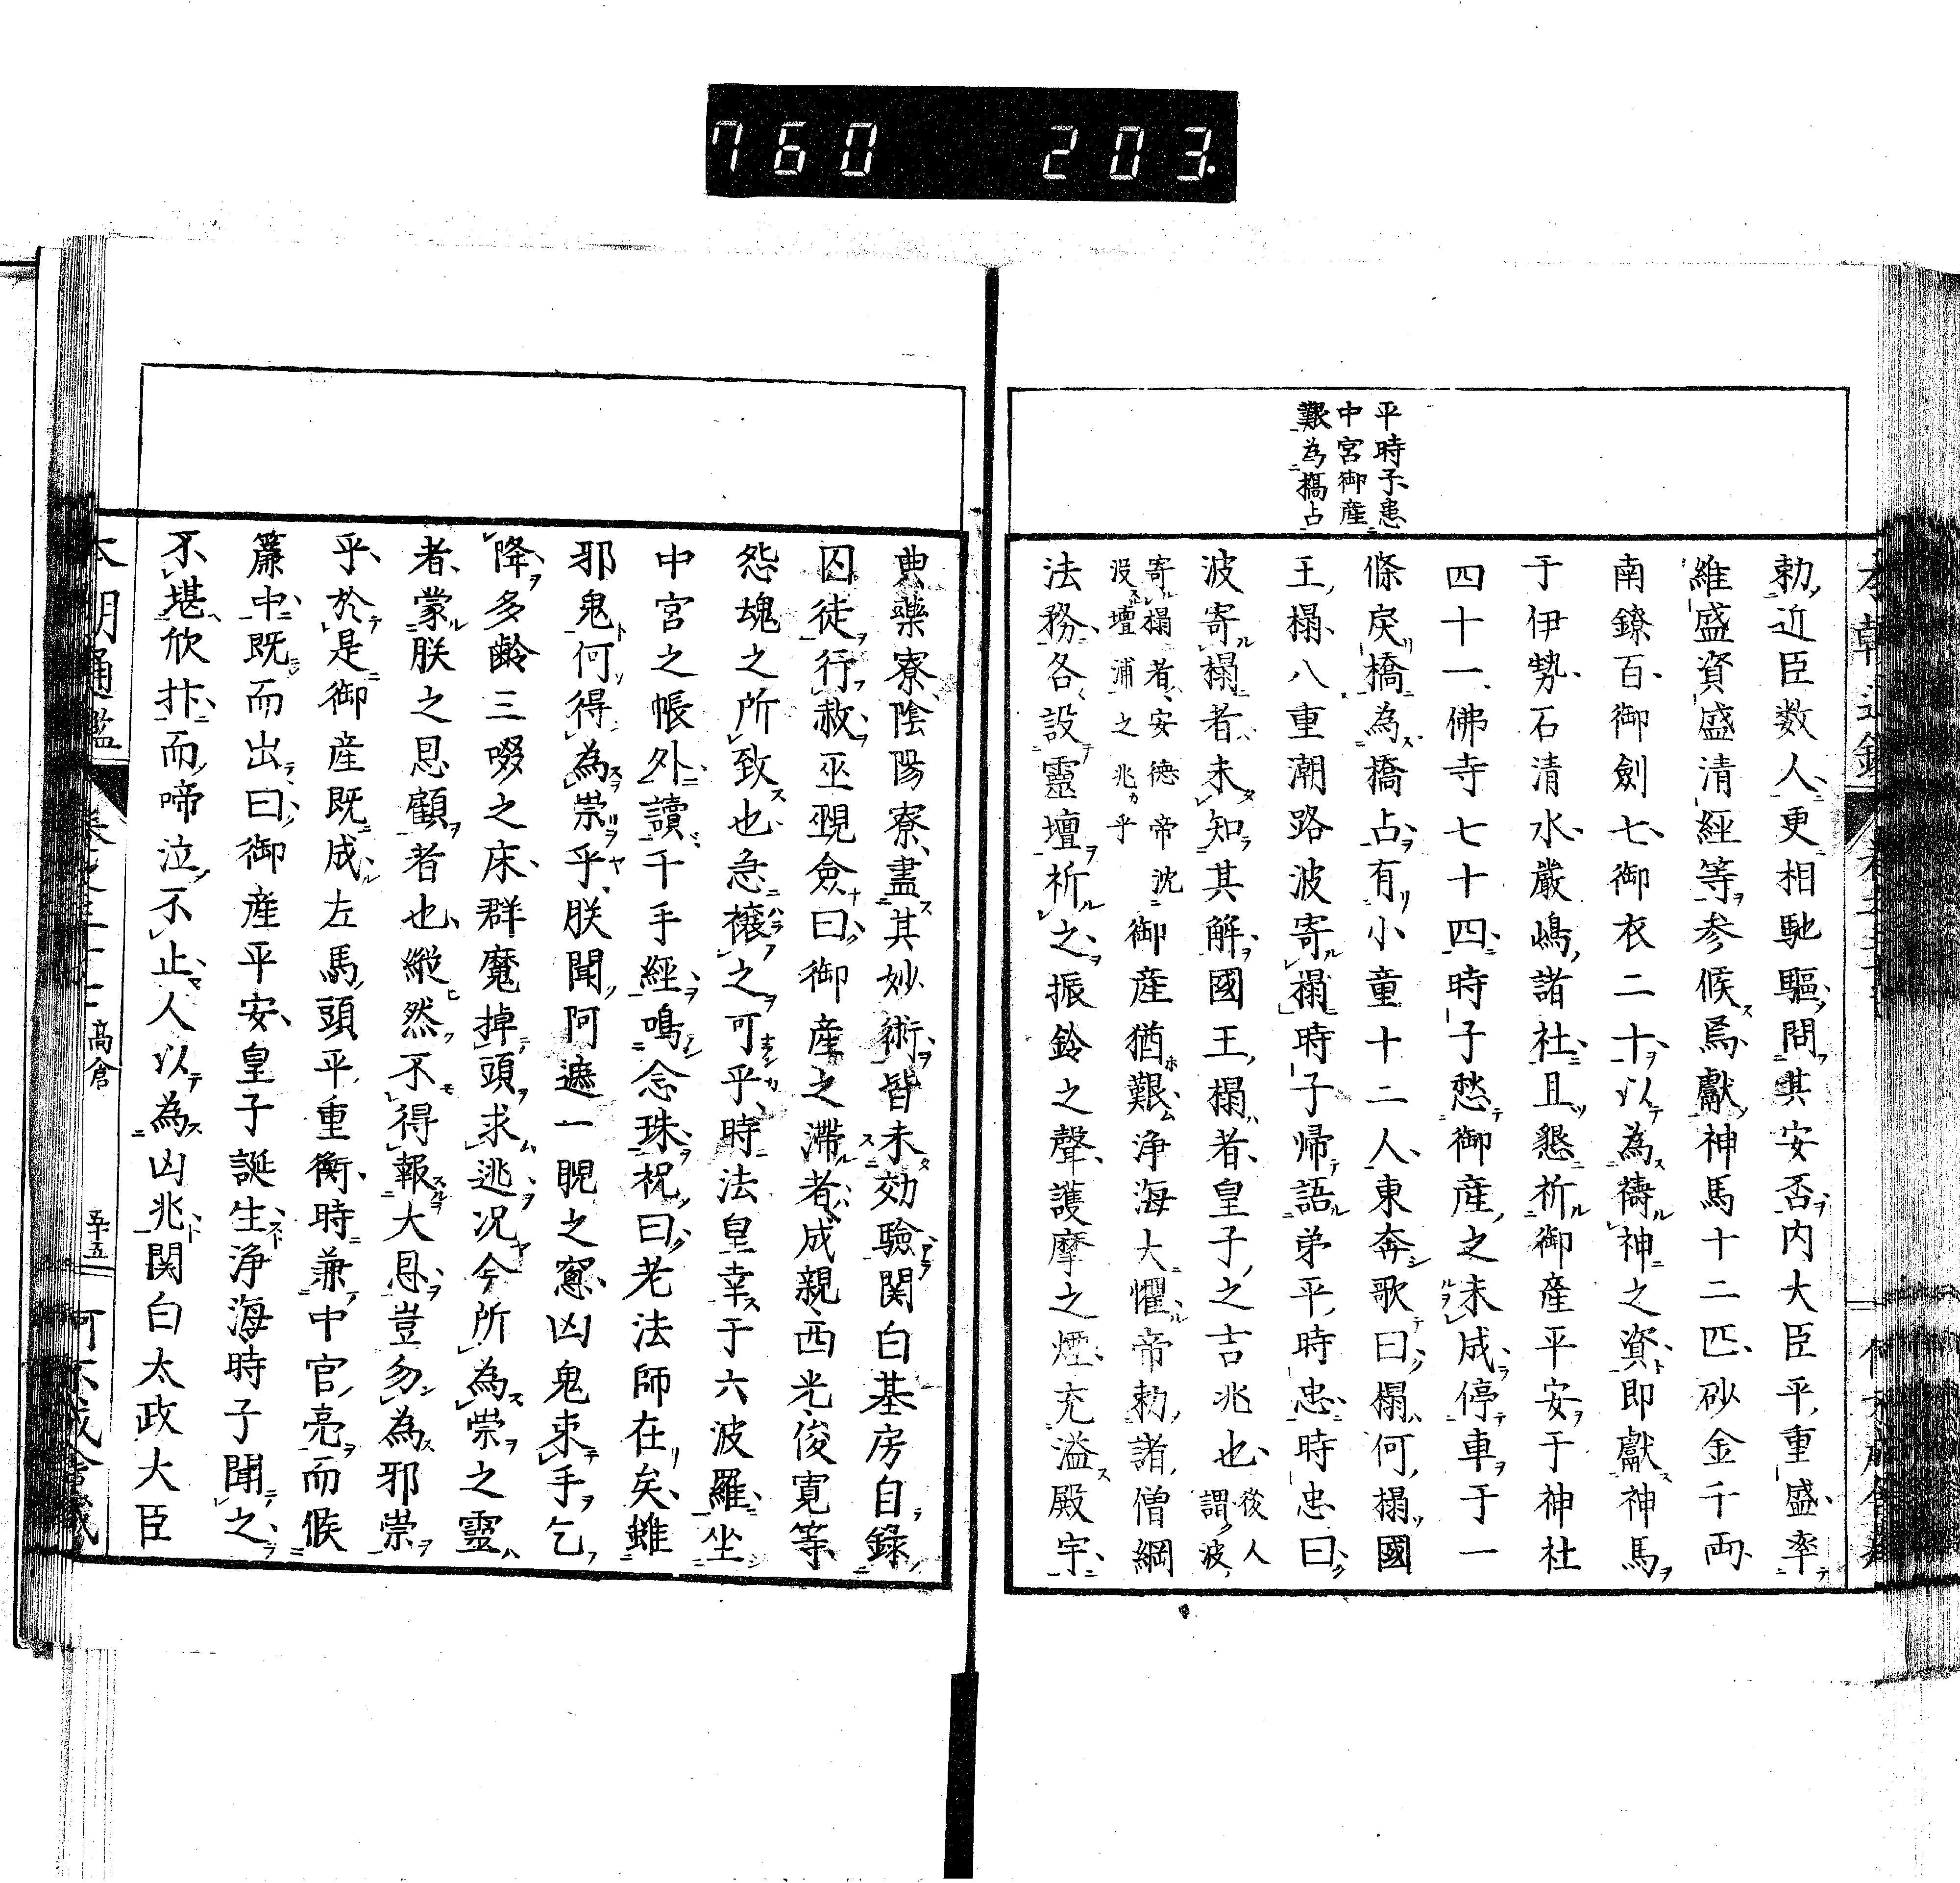 760 203.
平時子患
中宮御産
艱為橋占
勅近臣数人更相馳驅問其安否内大臣平重盛率
維盛資盛清經等参候焉獻神馬十二匹砂金千両
南鐐百御劍七御衣二十以為禱神之資即獻神馬
于伊勢石清水嚴嶋諸社且懇祈御産平安于神社
四十一佛寺七十四時子愁御産之未成停車于一
條戻橋為橋占有小童十二人東奔歌曰榻何榻國
王榻八重潮路波寄榻時子帰語弟平時忠時忠曰
波寄榻者未知其解國王榻者皇子之吉兆也後人謂波
寄榻者安德帝沈
没壇浦之兆乎
御産猶艱浄海大懼帝勅諸僧綱
法務各設靈壇祈之振鈴之聲護摩之煙充溢殿宇
典藥寮陰陽寮盡其妙術皆未効驗関白基房自錄
囚徒行赦巫覡僉曰御産之滞者成親西光俊寛等
怨魂之所致也急禳之可乎時法皇幸于六波羅坐
中宮之帳外讀千手經鳴念珠祝曰老法師在矣雖
邪鬼何得為祟乎朕聞阿遮一睨之窻凶鬼束手乞
降多齢三啜之床群魔掉頭求逃况今所為祟之靈
者蒙朕之恩顧者也縱然不得報大恩豈勿為邪祟
乎於是御産既成左馬頭平重衡時兼中官亮而候
簾中既而出曰御産平安皇子誕生浄海時子聞之
不堪欣抃而啼泣不止人以為凶兆関白太政大臣
高倉
五十五